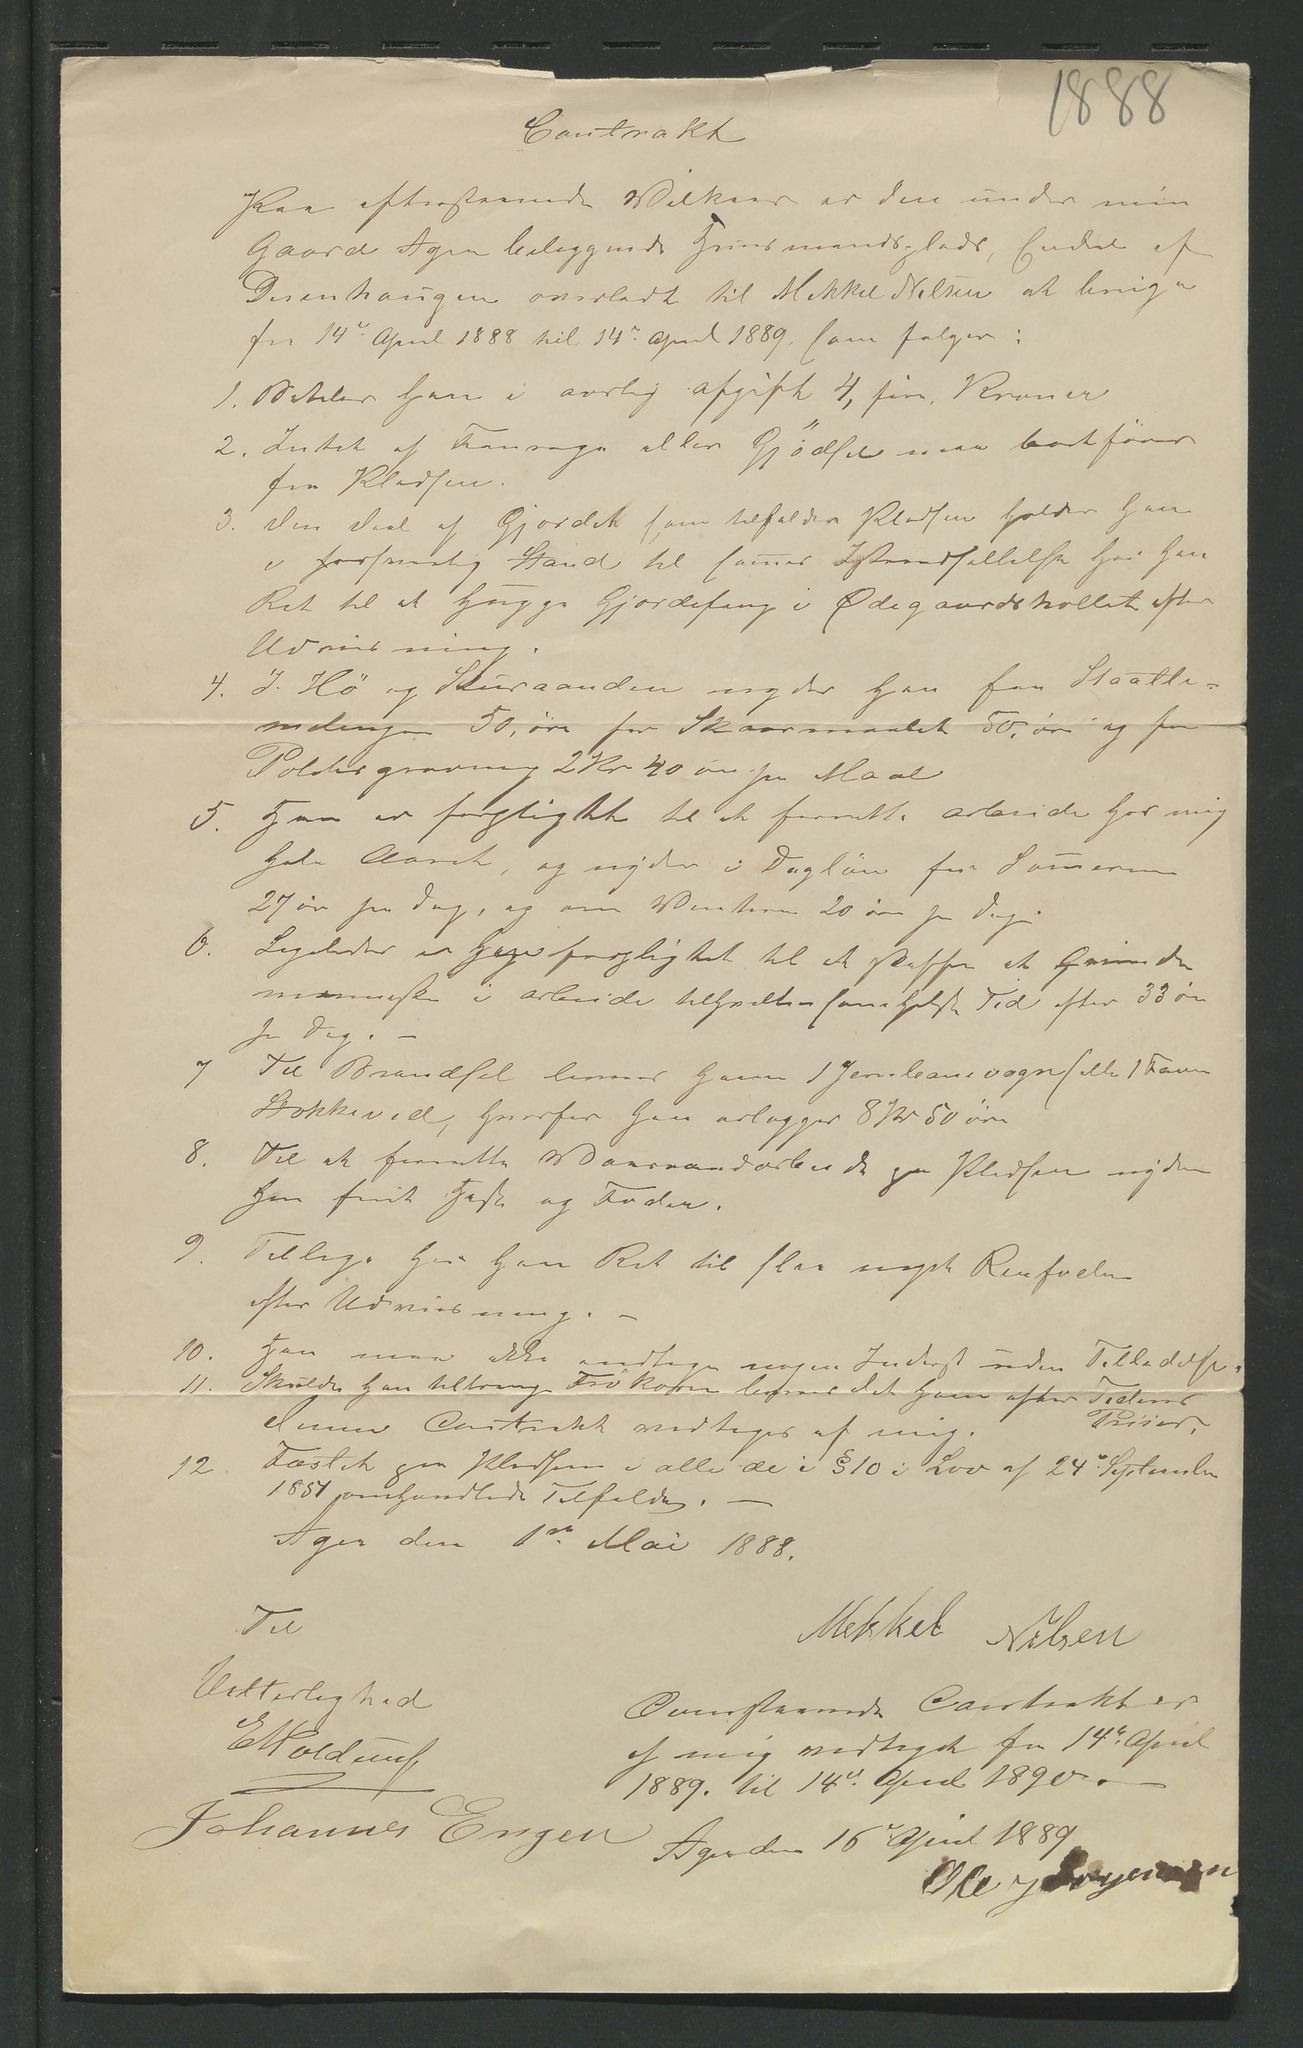 1888
Contrakt
Paa efterstaaende Vilkaar er den under min
Gaard Ager beliggende Huusmandsplads, Endet af
Deienhaugen overladt til Mekkel Nilsen at bruge
fra 14de April 1888 til 14de April 1889. som følger:
1. Betaler han i aarlig afgift 4, fire, Kroner
2. Intet af Fourage eller Gjödsel maa bortföres
fra Pladsen.
3. Den Deel af Gjerdet som tilfalder Pladsen holder han
i forsvarlig Stand til sammes Istandsættelse har han
Ret til at hugge Gjerdefang i Ødegaardskollet efter
Udviisning.
4. I Hö og Skuraanden nyder han for
50, öre for Skaarmaalet 50, öre og for
Potetesgravning 2 Kr 40 öre pr Maal
5. Han er forpligtet til at forrette arbeide hos mig
hele Aaret, og nyder i Daglön for Sommeren
27 öre pr Dag, og om Vinteren 20 öre pr Dag.
6. Ligeledes er han forpligtet til at skaffe et Qvinde
menneske i arbeide tilhvilkensomhelst Tid efter 33 öre
pr Dag. —
7 Til Brændsel levers ham 1 Jernbanevogn eller 1 Favn
Stokkeved, hvorfor han erlægger 8 Kr 50 öre
8. Til at forrette Vaaraandarbeide paa Pladsen nyder
han friit Hest og Foder.
9. Tillige har han Ret til slaa noget Reufoder
efter Udviisning. —
10. Han maa ikke indtage nogen Inderst uden Tilladelse.
11. Skulde han tiltrænge Frökorn levers det ham efter Tidens
Priser.
denne Contrakt vedtages af mig.
12. Fæstet paa Pladsen i alle de i § 10 i Lov af 24de September
1851 omhandlede Tilfælde. —
Ager den 1ste Mai 1888.
Til
Mekkel Nilsen
Vitterlighed
E Koldrup
Johannes Engen
Ovenstaaende Contrakt er
af mig vedtaget fra 14de April
1889. til 14de April 1890. —
Ager den 16de April 1889
Ole Jörgensen